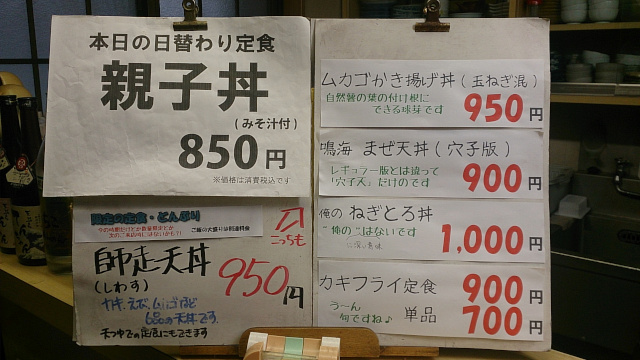 本日の日替わり定食
親子丼
(みそ汁付)
850円
※価格は消費税込です
限定の定食・どんぶり
ご飯の大盛りは別途料金
こっちも
師走天丼
(しわす)
950円
カキ、えび、ムカゴなど
の天丼です
定食にもできます
ムカゴかき揚げ丼(玉ねぎ混)
自然薯の葉の付け根に
できる球芽です
950円
鳴海 まぜ天丼(穴子版)
レギュラー版とは違って
「穴子天」だけのです
900円
俺の ねぎとろ丼
"俺の"ではないです
1,000円
カキフライ定食 900円
う〜ん
何ですね♪
単品 700円